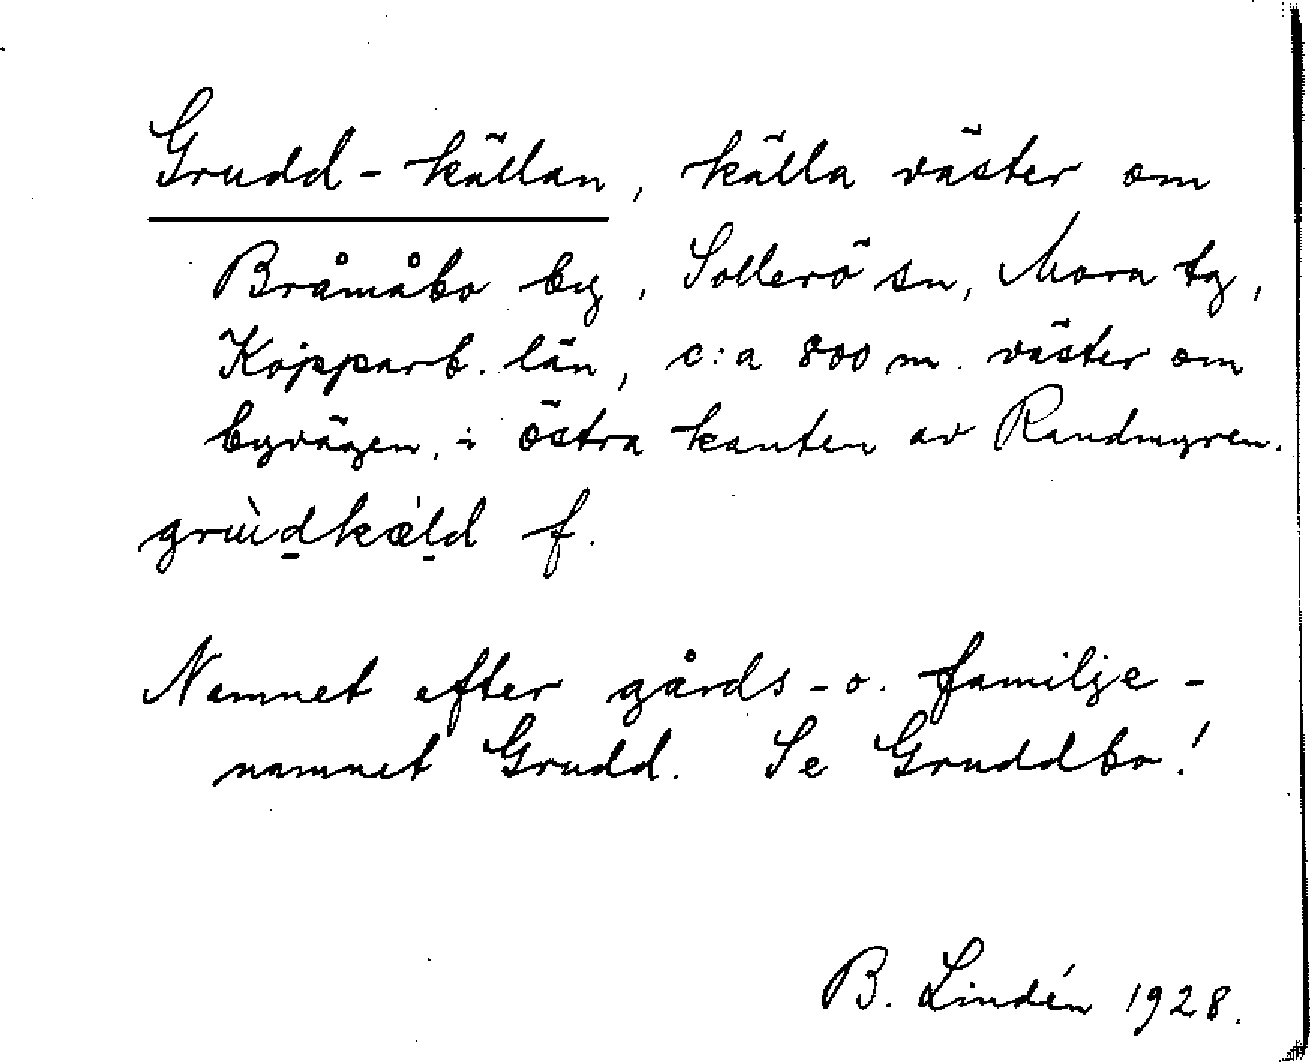 Grudd-källan, källa väster om
Bråmåbo by, Sollerö sn, Mora tg,
Kopparb. län, c:a 800 m. väster om
byvägen, i östra kanten av Randmyren.
grùd̠kæ̀l̠d f.
Namnet efter gårds- o. familje-
namnet Grudd. Se Gruddbo!
B. Lindén 1928.